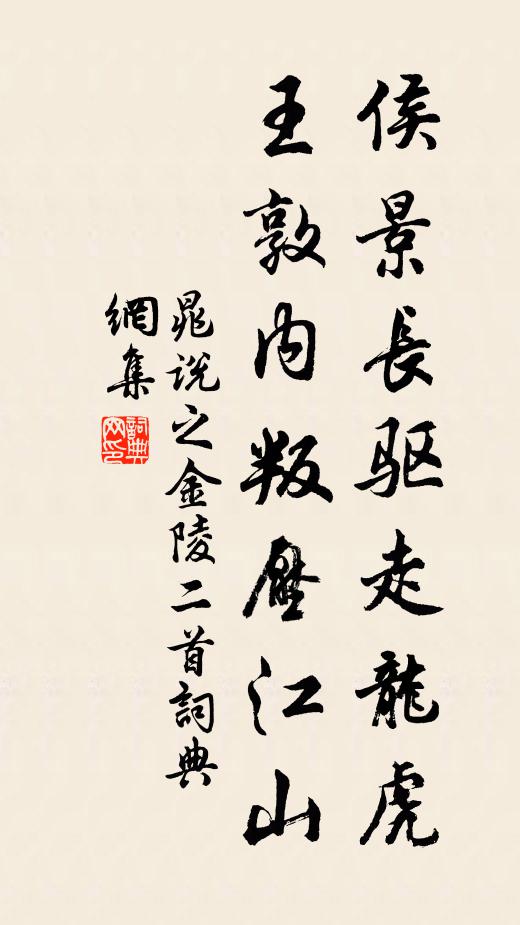 侯景長驱走龍虎
王敦内叛壓江山
晁説之金陵二首詞典
網集
詞典
网印